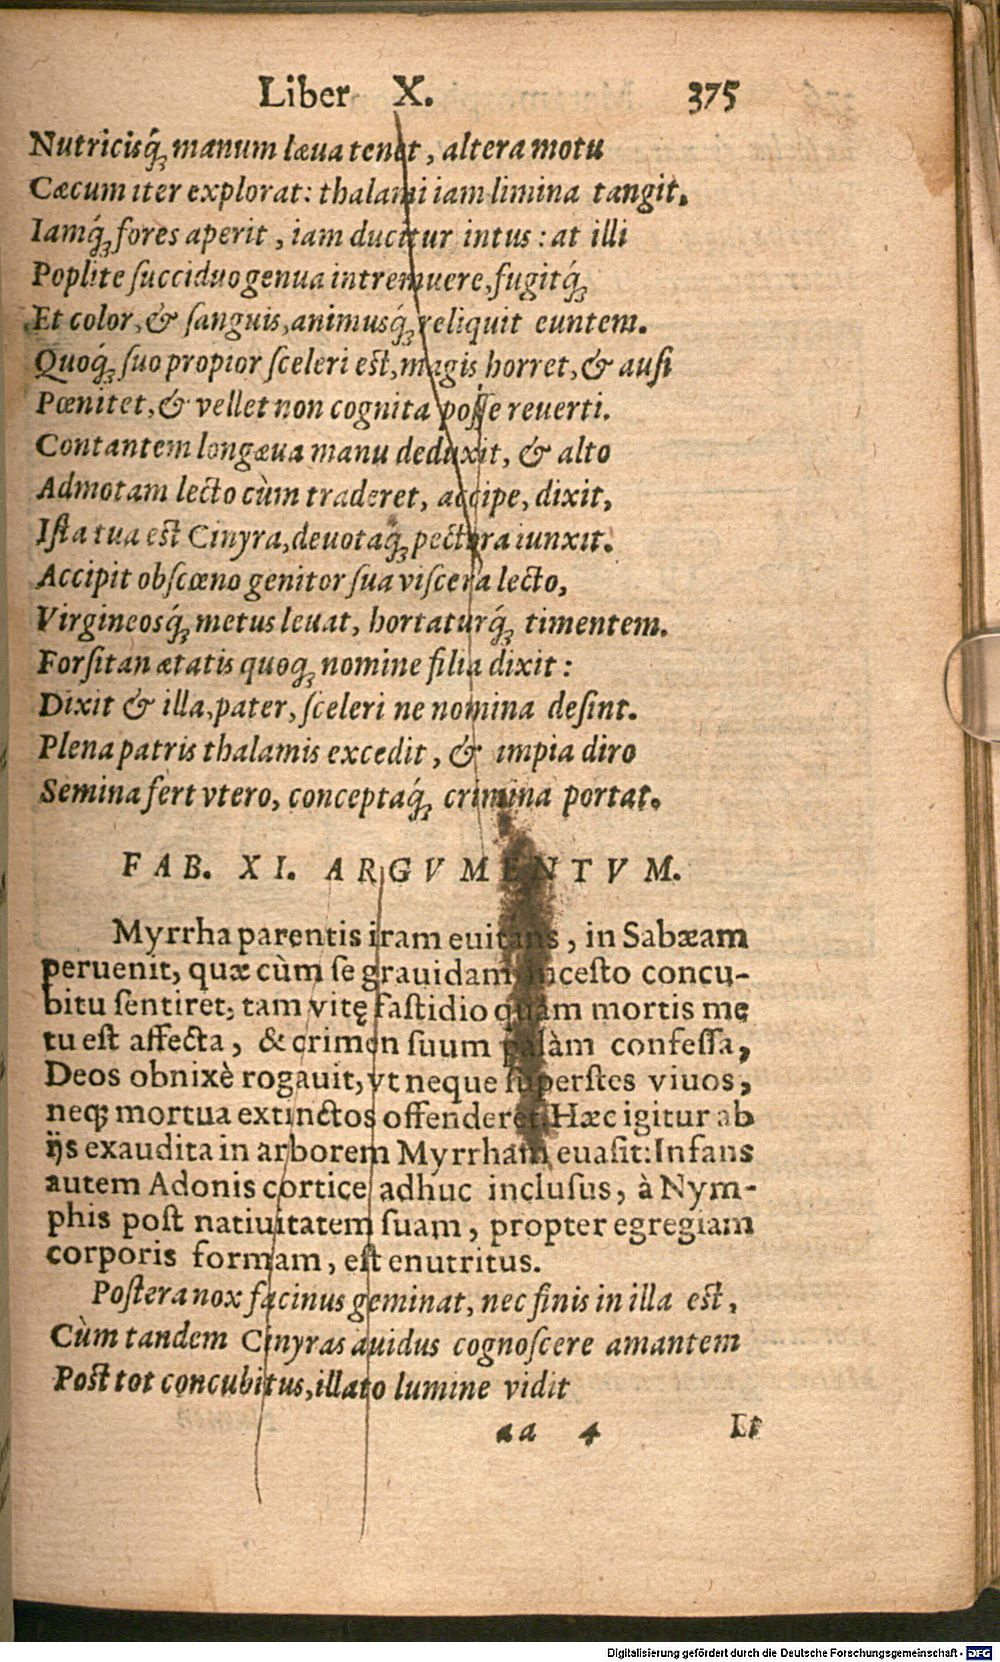 Liber X. 375
Nutricisq́; manum læua tenet, altera motu
Cæcum iter explorat: thalami iam limina tangit.
Iamq́; fores aperit, iam ducitur intus: at illi
Poplite ſucciduo genua intremuere, fugitq́;
Et color, & ſanguis, animusq́; reliquit euntem.
Quoq́; ſuo propior ſceleri est, magis horret, & auſi
Pœnitet, & vellet non cognita poſſe reuerti.
Contantem longæua manu deduxit, & alto
Admotam lecto cùm traderet, accipe, dixit,
Iſta tua est Cinyra, deuotaq́; pectora iunxit.
Accipit obſcœno genitor ſua viſcera lecto,
Virgineosq́; metus leuat, hortaturq́; timentem.
Forſitan ætatis quoq; nomine filia dixit:
Dixit & illa, pater, ſceleri ne nomina deſint.
Plena patris thalamis excedit, & impia diro
Semina fert vtero, conceptaq́; crimina portat.
FAB. XI. ARGVMENTVM.
Myrrha parentis iram euitans, in Sabæam
peruenit, quæ cùm ſe grauidam inceſto concu-
bitu ſentiret, tam vitę faſtidio quàm mortis mę
tu eſt affecta, & crimen ſuum palàm confeſſa,
Deos obnixè rogauit, vt neque ſuperſtes viuos,
neq; mortua extinctos offenderet. Hæc igitur ab
ijs exaudita in arborem Myrrham euaſit: Infans
autem Adonis cortice adhuc incluſus, à Nym-
phis poſt natiuitatem ſuam, propter egregiam
corporis formam, eſt enutritus.
Poſtera nox facinus geminat, nec finis in illa est,
Cùm tandem Cinyras auidus cognoſcere amantem
Post tot concubitus, illato lumine vidit
aa 4 Et
Digitalisierung gefördert durch die Deutsche Forschungsgemeinschaft - DFG